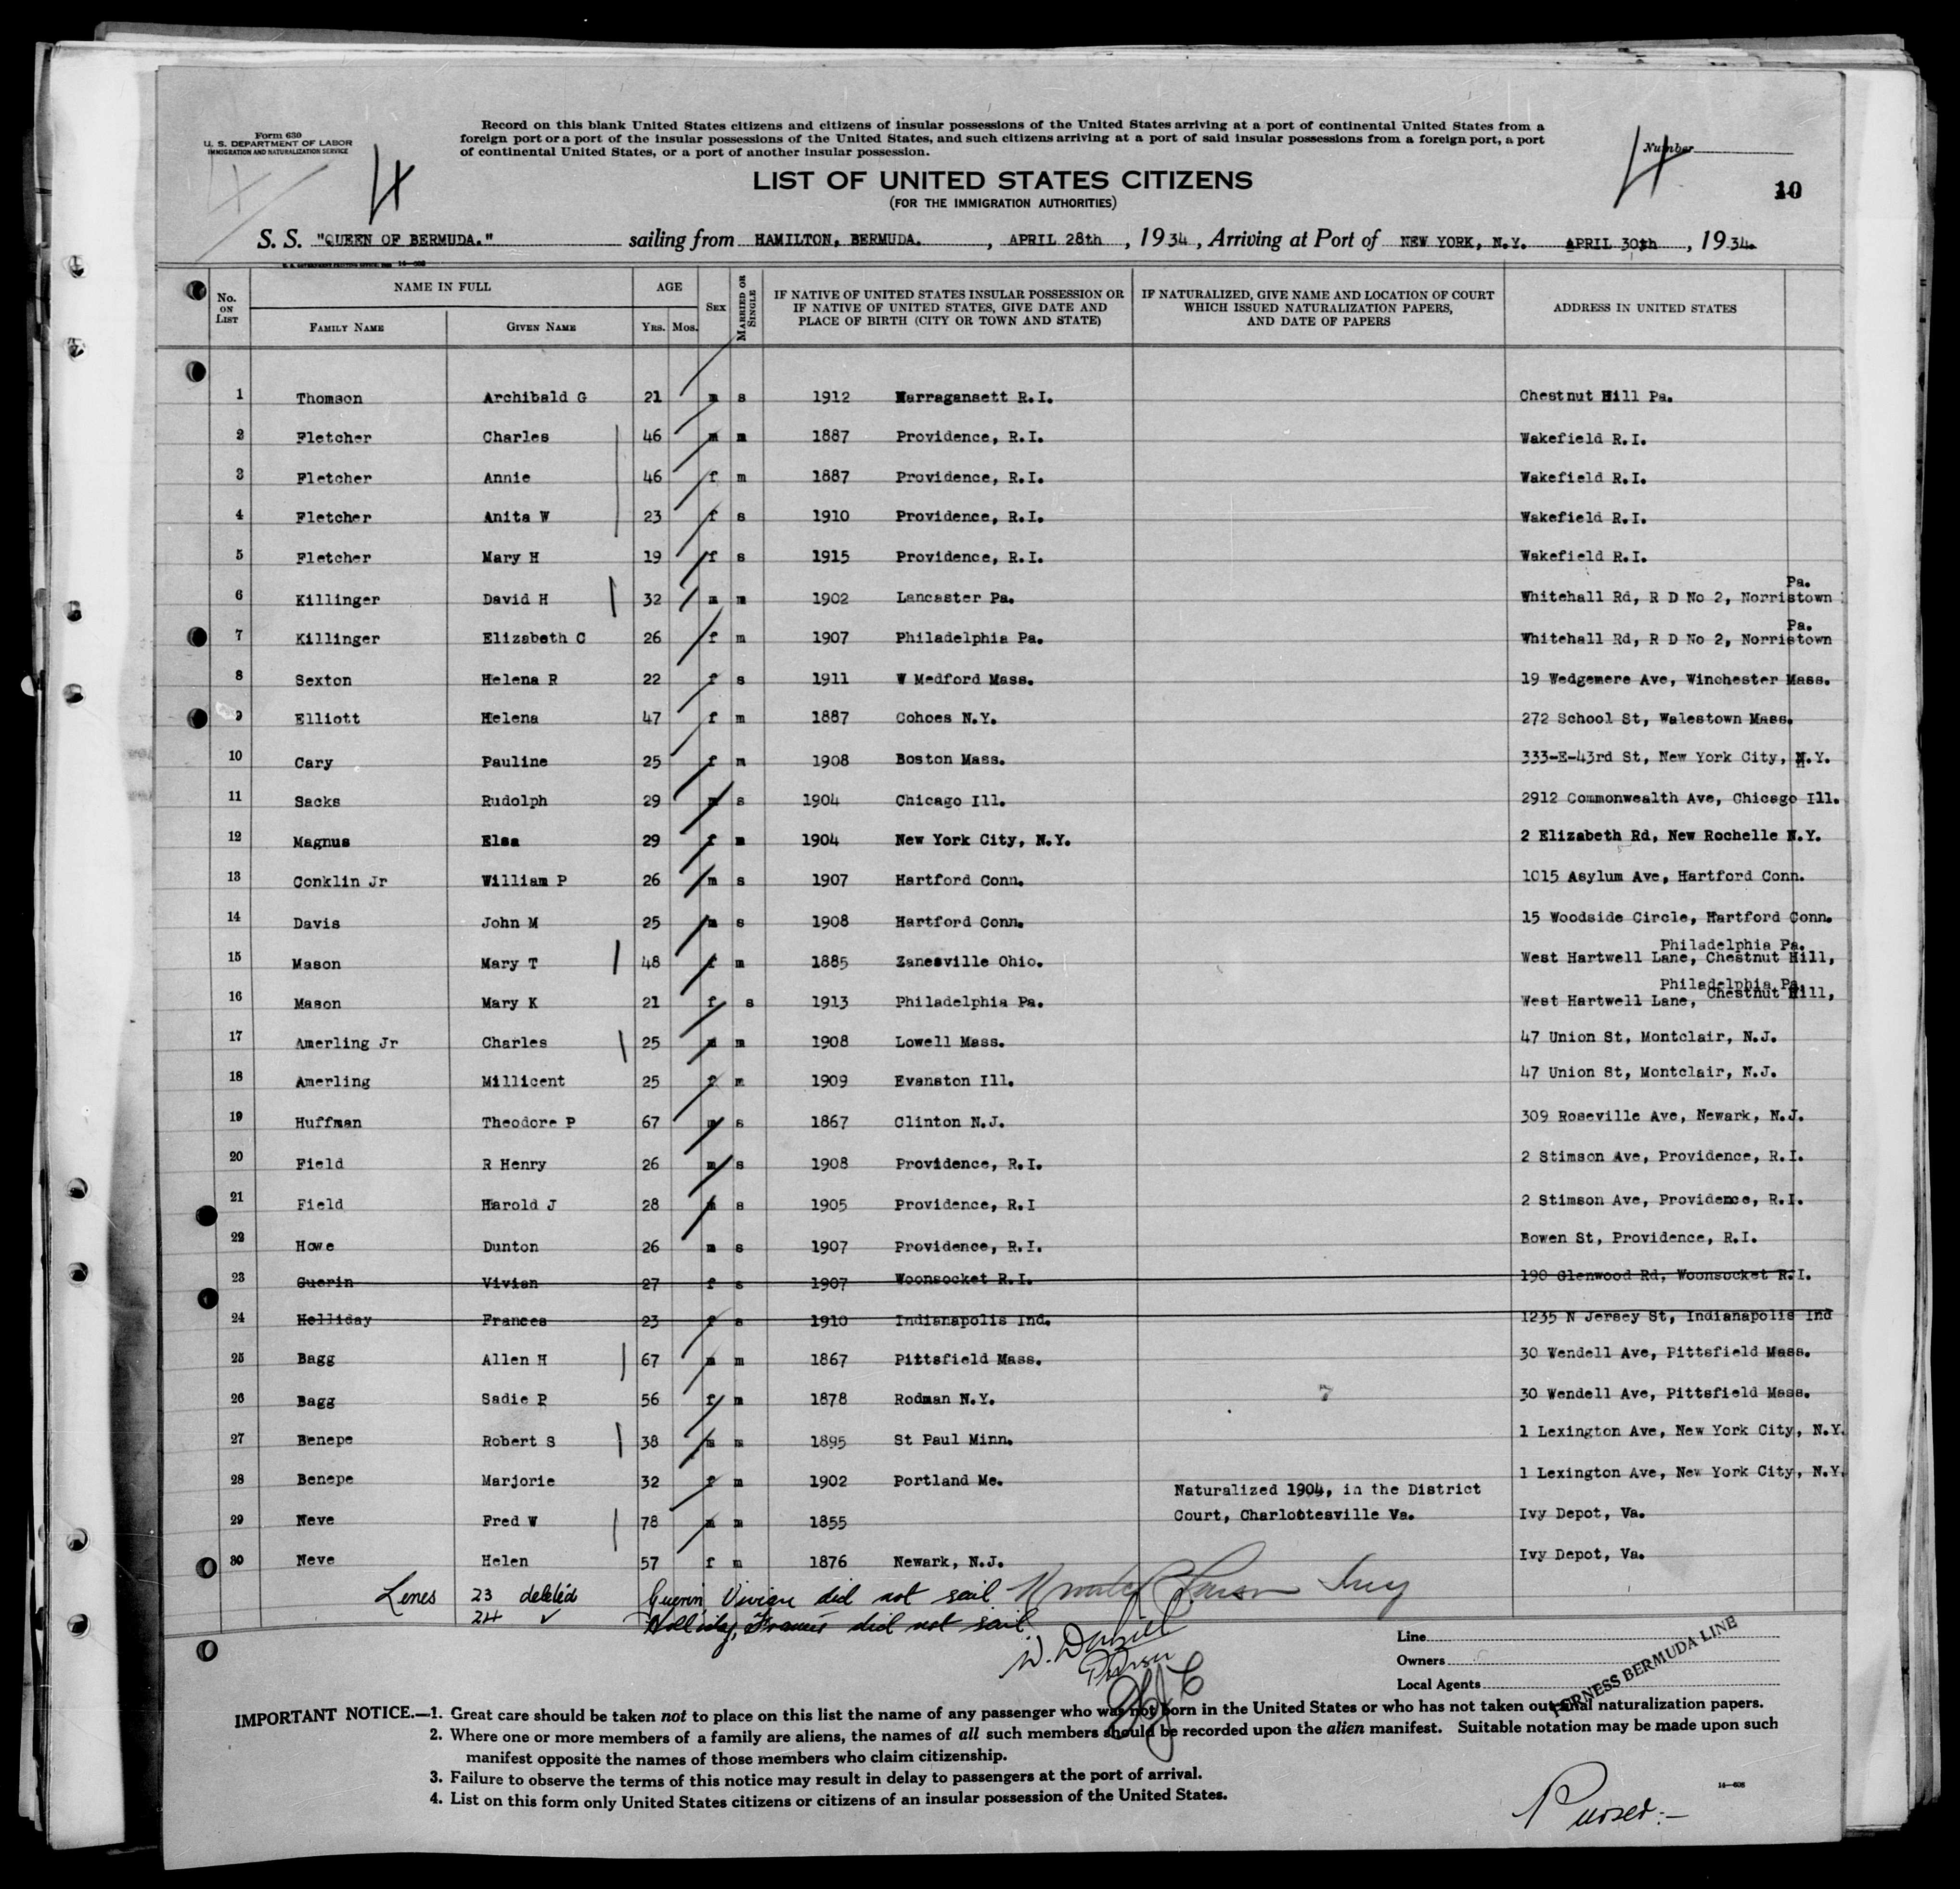 Form 630
U. S. DEPARTMENT OF LABOR
IMMIGRATION AND NATURALIZATION SERVICE
Record on this blank United States citizens and citizens of insular possessions of the United States arriving at a port of continental United States from a
foreign port or a port of the insular possessions of the United States, and such citizens arriving at a port of said insular possessions from a foreign port, a port
of continental United States, or a port of another insular possession.
4
4
Number
LIST OF UNITED STATES CITIZENS
(FOR THE IMMIGRATION AUTHORITIES)
10
S. S. "QUEEN OF BERMUDA." sailing from HAMILTON, BERMUDA. , APRIL 28th , 1934 , Arriving at Port of NEW YORK, N.Y. APRIL 30th , 1934.
No. ON LIST
NAME IN FULL
FAMILY NAME GIVEN NAME
AGE
YRS. MOS.
SEX
MARRIED OR SINGLE
IF NATIVE OF UNITED STATES INSULAR POSSESSION OR
IF NATIVE OF UNITED STATES, GIVE DATE AND
PLACE OF BIRTH (CITY OR TOWN AND STATE)
IF NATURALIZED, GIVE NAME AND LOCATION OF COURT
WHICH ISSUED NATURALIZATION PAPERS,
AND DATE OF PAPERS
ADDRESS IN UNITED STATES
1 Thomson Archibald G 21 m s 1912 Narragansett R.I. Chestnut Hill Pa.
2 Fletcher Charles 46 m m 1887 Providence, R.I. Wakefield R.I.
3 Fletcher Annie 46 f m 1887 Providence, R.I. Wakefield R.I.
4 Fletcher Anita W 23 f s 1910 Providence, R.I. Wakefield R.I.
5 Fletcher Mary H 19 f s 1915 Providence, R.I. Wakefield R.I.
Pa.
6 Killinger David H 32 m m 1902 Lancaster Pa. Whitehall Rd, R D No 2, Norristown
Pa.
7 Killinger Elizabeth C 26 f m 1907 Philadelphia Pa. Whitehall Rd, R D No 2, Norristown
8 Sexton Helena R 22 f s 1911 W Medford Mass. 19 Wedgemere Ave, Winchester Mass.
9 Elliott Helena 47 f m 1887 Cohoes N.Y. 272 School St, Walestown Mass.
10 Cary Pauline 25 f m 1908 Boston Mass. 333-E-43rd St, New York City, N.Y.
11 Sacks Rudolph 29 m s 1904 Chicago Ill. 2912 Commonwealth Ave, Chicago Ill.
12 Magnus Elsa 29 f m 1904 New York City, N.Y. 2 Elizabeth Rd, New Rochelle N.Y.
13 Conklin Jr William P 26 m s 1907 Hartford Conn. 1015 Asylum Ave, Hartford Conn.
14 Davis John M 25 m s 1908 Hartford Conn. 15 Woodside Circle, Hartford Conn.
Philadelphia Pa.
15 Mason Mary T 48 f m 1885 Zanesville Ohio. West Hartwell Lane, Chestnut Hill,
Philadelphia Pa.
16 Mason Mary K 21 f s 1913 Philadelphia Pa. West Hartwell Lane, Chestnut Hill,
17 Amerling Jr Charles 25 m m 1908 Lowell Mass. 47 Union St, Montclair, N.J.
18 Amerling Millicent 25 f m 1909 Evanston Ill. 47 Union St, Montclair, N.J.
19 Huffman Theodore P 67 m s 1867 Clinton N.J. 309 Roseville Ave, Newark, N.J.
20 Field R Henry 26 m s 1908 Providence, R.I. 2 Stimson Ave, Providence, R.I.
21 Field Harold J 28 m s 1905 Providence, R.I 2 Stimson Ave, Providence, R.I.
22 Howe Dunton 26 m s 1907 Providence, R.I. Bowen St, Providence, R.I.
23 Guerin Vivian 27 f s 1907 Woonsocket R.I. 190 Glenwood Rd, Woonsocket R.I.
24 Holliday Frances 23 f s 1910 Indianapolis Ind. 1235 N Jersey St, Indianapolis Ind
25 Bagg Allen H 67 m m 1867 Pittsfield Mass. 30 Wendell Ave, Pittsfield Mass.
26 Bagg Sadie P 56 f m 1878 Rodman N.Y. 30 Wendell Ave, Pittsfield Mass.
27 Benepe Robert S 38 m m 1895 St Paul Minn. 1 Lexington Ave, New York City, N.Y.
28 Benepe Marjorie 32 f m 1902 Portland Me. 1 Lexington Ave, New York City, N.Y.
Naturalized 1904, in the District
29 Neve Fred W 78 m m 1855 Court, Charlottesville Va. Ivy Depot, Va.
30 Neve Helen 57 f m 1876 Newark, N.J. Ivy Depot, Va.
Lines 23 deleted Guerin, Vivian did not sail
24 ✓ Holliday, Frances did not sail
Purser
Line
Owners
Local Agents
FURNESS BERMUDA LINE
IMPORTANT NOTICE.—1. Great care should be taken not to place on this list the name of any passenger who was not born in the United States or who has not taken out final naturalization papers.
2. Where one or more members of a family are aliens, the names of all such members should be recorded upon the alien manifest. Suitable notation may be made upon such
manifest opposite the names of those members who claim citizenship.
3. Failure to observe the terms of this notice may result in delay to passengers at the port of arrival.
4. List on this form only United States citizens or citizens of an insular possession of the United States.
Purser:-